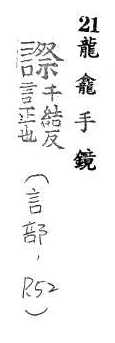 21龍龕手鏡
䜁千結反
言正也
(言部, P.52)